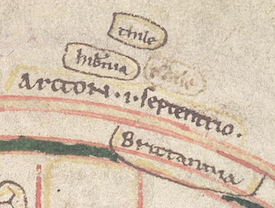 thile
hib̄nia
arcton .i. septentrio.
Brittannia